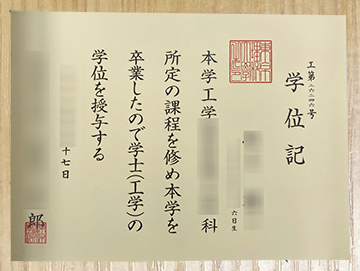 学位記
工第二六二四六号
六日生
本学工学 科
所定の課程を修め本学を
卒業したので学士(工学)の
学位を授与する
十七日
郎